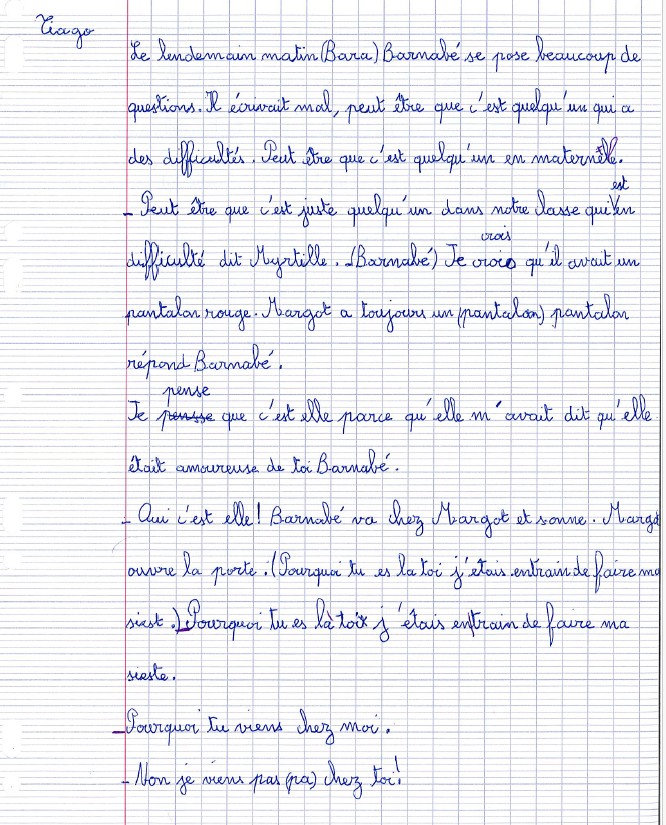 Tiago
Le lendemain matin (Bara) Barnabé se pose beaucoup de
questions. Il écrivait mal, peut être que c'est quelqu'un qui a
des difficultés. Peut être que c'est quelqu'un en maternelle.
- Peut être que c'est juste quelqu'un dans notre classe qui est en
difficulté dit Myrtille. (Barnabé) Je crois qu'il avait un
pantalon rouge. Margot a toujours un (pantalon) pantalon
répond Barnabé.
Je pense que c'est elle parce qu'elle m'avait dit qu'elle
était amoureuse de toi Barnabé.
- Oui c'est elle! Barnabé va chez Margot et sonne. Margot
ouvre la porte. (Pourquoi tu es la toi j'étais entrain de faire ma
siest.) - Pourquoi tu es là toi j'étais entrain de faire ma
sieste.
- Pourquoi tu viens chez moi.
- Non je viens pas (pa) chez toi!